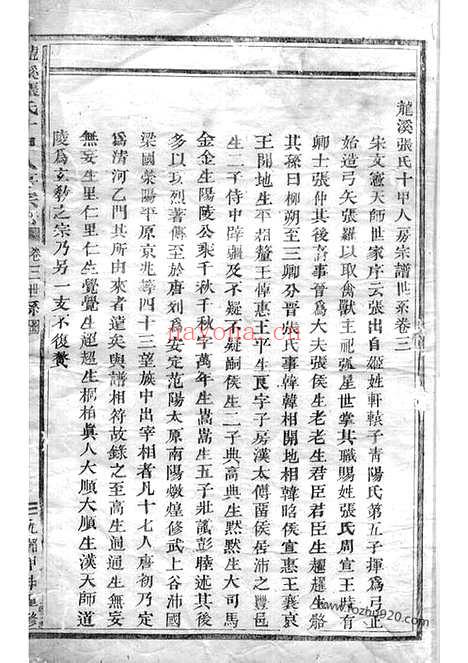 龍溪張氏十甲人房宗譜世系卷三
宋文憲天師世家序云張出自姬姓軒轅子青陽氏第五子揮爲弓正
始造弓矢張羅以取禽獸王祀弧星世掌其職賜姓張氏周宣王時有
卿士張仲其後裔事晉爲大夫張侯生老老生君臣君臣生趯趯生骼
其孫曰柳朔至三卿分晉張氏事韓韓相開地相韓昭侯宣惠王襄哀
王開地生平相釐王悼惠王平生良字子房漢太傅菑侯居沛之豐邑
生二子侍中辟疆及不疑不疑嗣侯生二子典高典生默默生大司馬
金金生陽陵公乘千秋千秋字萬年生嵩嵩生五子壯讃彭睦述其後
多以爵邑烈著傳至於唐列爲安定范陽太原南陽燉煌修武上谷沛國
梁國滎陽平原京兆等四十三望族中出宰相者凡十七人唐初乃定
爲清河乙門其所由來遠矣與譜相符故錄之至高生通通生無妄
無妄生里仁里仁生覺覺生超超生桐柏眞人大順大順生漢天師道
陵爲玄教之宗乃另一支不復贅
卷三世系圖
nayona.cn
www.fozhu920.com